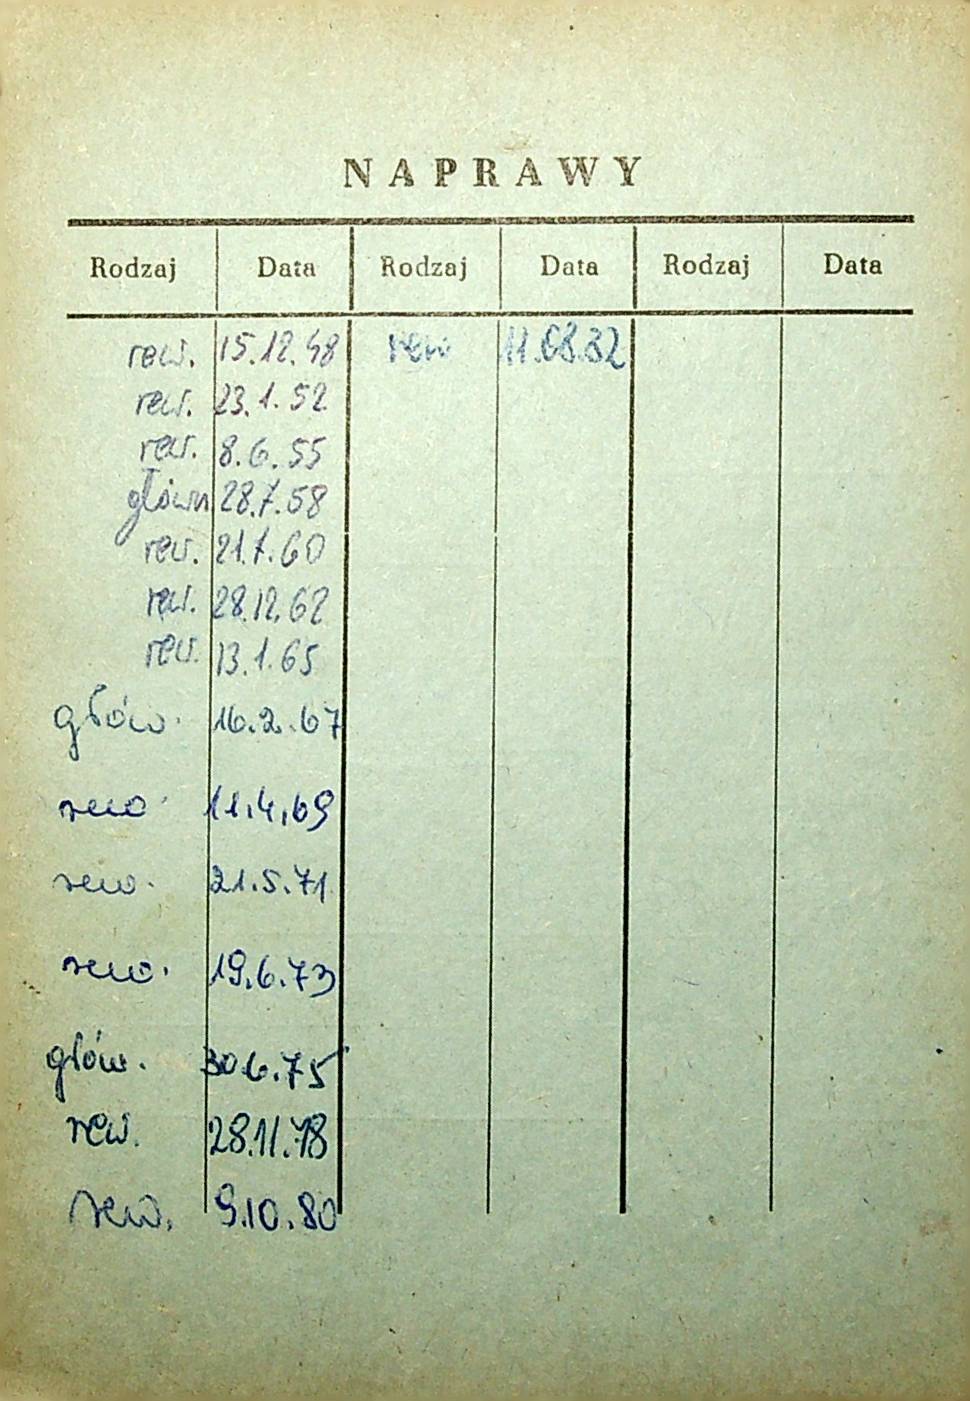 NAPRAWY
Rodzaj Data Rodzaj Data Rodzaj Data
rew. 15.12.48 rew 11.08.82
rew. 23.1.52
rew. 8.6.55
główn 28.7.58
rew. 21.7.60
rew. 28.12.62
rew. 13.1.65
głów. 16.2.67
rew. 11.4.69
rew. 21.5.71
rew. 19.6.73
głów. 30.6.75
rew. 28.11.78
rew. 9.10.80